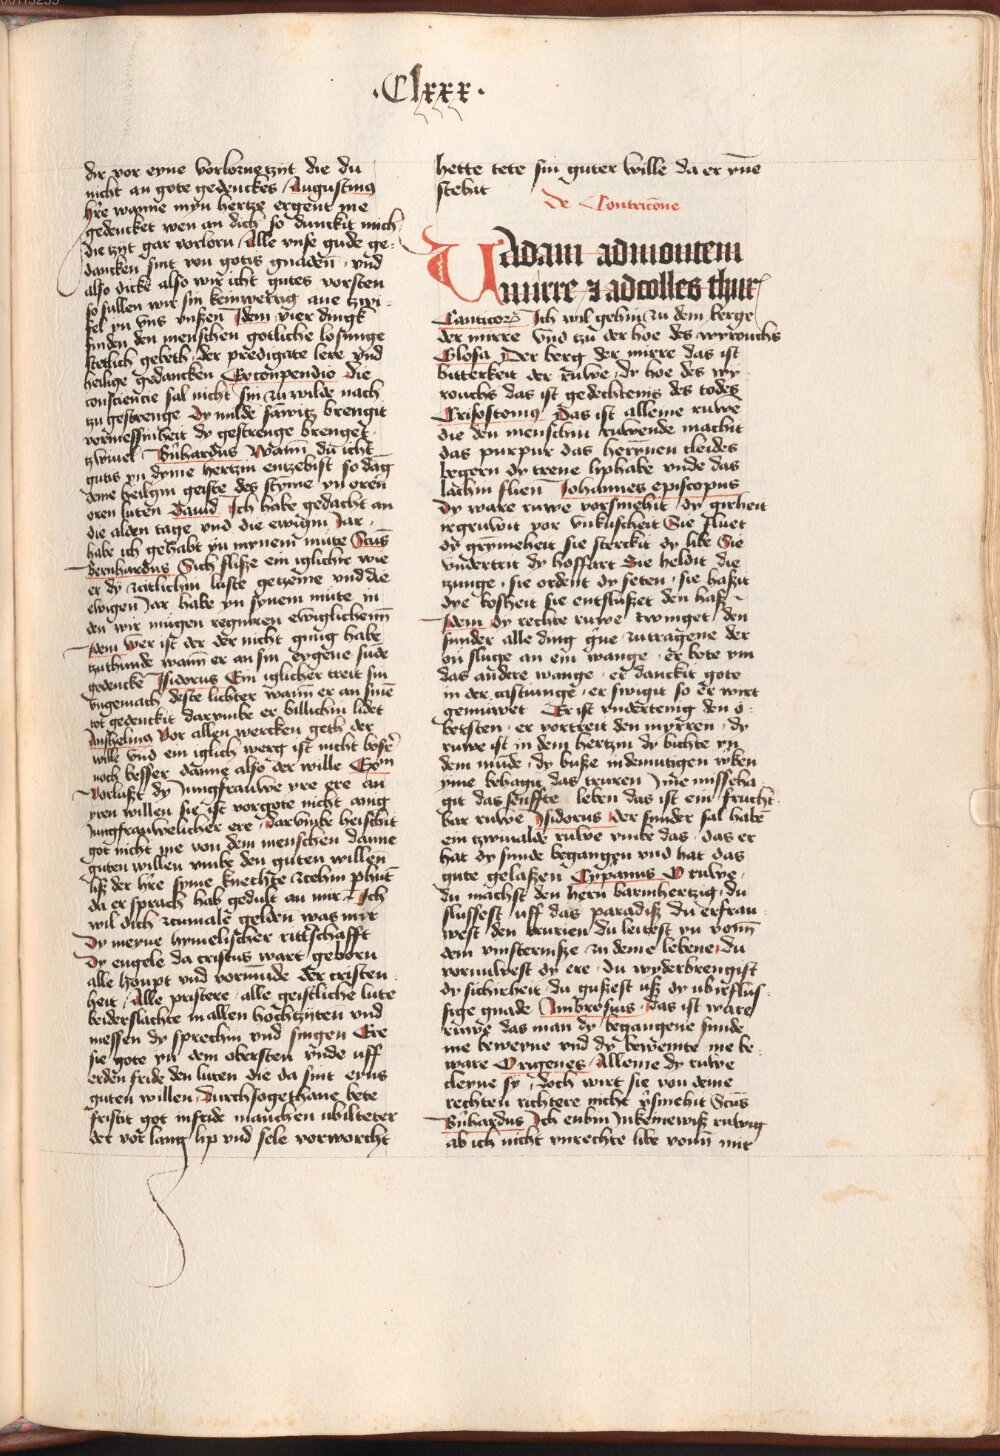 ·Clxxx·
dir vor eyne vorlorne zyt die du
nicht an gote gedenckes Augustinus
h're wanne myn hertze ergent me
gedencket wen an dich so dunckit mich
die zyt gar vorlorn / Alle vnse gude ge-
dancken sint von gotis gnaden · vnd
also dicke also wir icht gutes vorsten
so sullen wir sin keinwertig ane zwi-
fel yn vns vnszen Idem vier dingk
finden den menschen gotliche losunge
stetlich gebeth der predigate lere vnd
heilige gedancken Ex conpendio die
consciencie sal nicht sin zu wilde nach
zu gestrenge Dy milde sawitz brengit
vormessinheit dy gestrenge brenget
tzwiuel B'nhardus Wann du icht
gutis yn dyme hertzin entzebist so dag
deme heilgin geiste des styme yn oren
oren luten Dauid Ich habe gedacht an
die alden tage vnd die ewigin Jar ·
habe ich gehabt yn mynem mute Scus
Bernhardus Sich flisze ein iglichir wie
er dy zcitlichin luste getzeme vnd die
ewigen Jar habe yn synem mute in
den wir mugen regniren ewiglichenn
Idem Wer ist der der nicht gnug habe
tzuthunde wann er an sin eygene sunde
gedencke Isidorus Ein iglicher treit sin
vngemach deste lichter wann er an sine
tot gedenckit darumbe er billichin lidet
Anshelmus Vor allen wercken geth der
wille vnd ein iglich werg ist nicht bosz
noch besser danne also der wille Ex'm
Vorlust dy Jungfrauwe yre ere an
yren willen sie ist vorgote nicht anig
Jungfrauwelicher ere · darvmbe heischit
got nicht me von dem menschen danne
guten willen vmbe den guten willen
lisz der h're syme knechte zcehin phunt
da er sprach hab gedult an mir · Ich
wil dich zcumale gelden was mir
Dy meyne hymelischer rittschafft
Dy engele da cristus wart geborn
alle houpt vnd vormunde der cristen-
heit / Alle pristere · alle geistliche lute
beiderslachte in allen hochzyten vnd
messen dy sprechin vnd singen Ere
sie gote yn dem obersten vnde uff
erden fride den luten die da sint eyns
guten willen / Durch sogethane bete
fristit got in fride manchen vbilteter
der vor lang lip vnd sele vorworcht
hette tete sin guter wille da er yme
stehit
De Contricone
Vadam admontem
mirre z adcolles thur'
Canticor' Ich wil gehin zu dem berge
der mirre vnd tzu der hoe des wyrouchs
Glosa Der berg der mirre das ist
bitterkeit der ruwe / dy hoe des wy-
rouchs das ist gedechtenis des todes
Crisostomus Das ist alleine ruwe
die den menschin ruwende machit
das purpur das herynen cleides
begern dy trene liphabe vnde das
lachin flien Johannes episcopus
Dy ware ruwe vorsmehit / dy girheit
irgruwit vor vnkuscheit Sie fluet
dy gryneheit sie sterckit dy libe Sie
vndertrit dy hoffart Sie heldit die
tzunge · sie ordent dy seten · sie haszit
dye bosheit sie entsluszet den hasz ·
Idem Dy rechte ruwe twinget den
sunder alle ding g'ne zutragene der
on sluge an ein wange · er bote ym
das andere wange · er danckit gote
in der castiunge · er swigit so er wirt
gemuwet Er ist vndertenig den o-
bersten · er vortreit den mynren · dy
ruwe ist in dem hertzin dy bichte yn
dem munde · dy busze in demutigen w'ken
yme behagit das truren / Ime missehа-
git das senffte leben das ist ein frucht-
bar ruwe Isidorus Der sunder sal haben
ein tzwualde ruwe vmbe das · das er
hat dy sunde begangen vnd hat das
gute gelaszen Cyprianus O ruwe ·
du machst den hern barmhertzig · du
slussest uff das paradisz du erfrau-
west den trurien du leitest yn vonn
dem vinsternisze zu deme lebene / Du
vornuwest dy ere · du wyderbrengist
dy sicherheit du guszest usz dy vbirflus-
sige gnade Ambrosius · das ist ware
ruwe das man dy begangene sunde
me beweyne vnd dy beweinte me be-
ware Origenes / Alleine dy ruwe
cleyne sy / Doch wirt sie von deme
rechten richtere nicht v'smehit Scus
B'nhardus Ich enbin Inkeinewisz ruwig
ab ich nicht vnrechte libe vonn mir